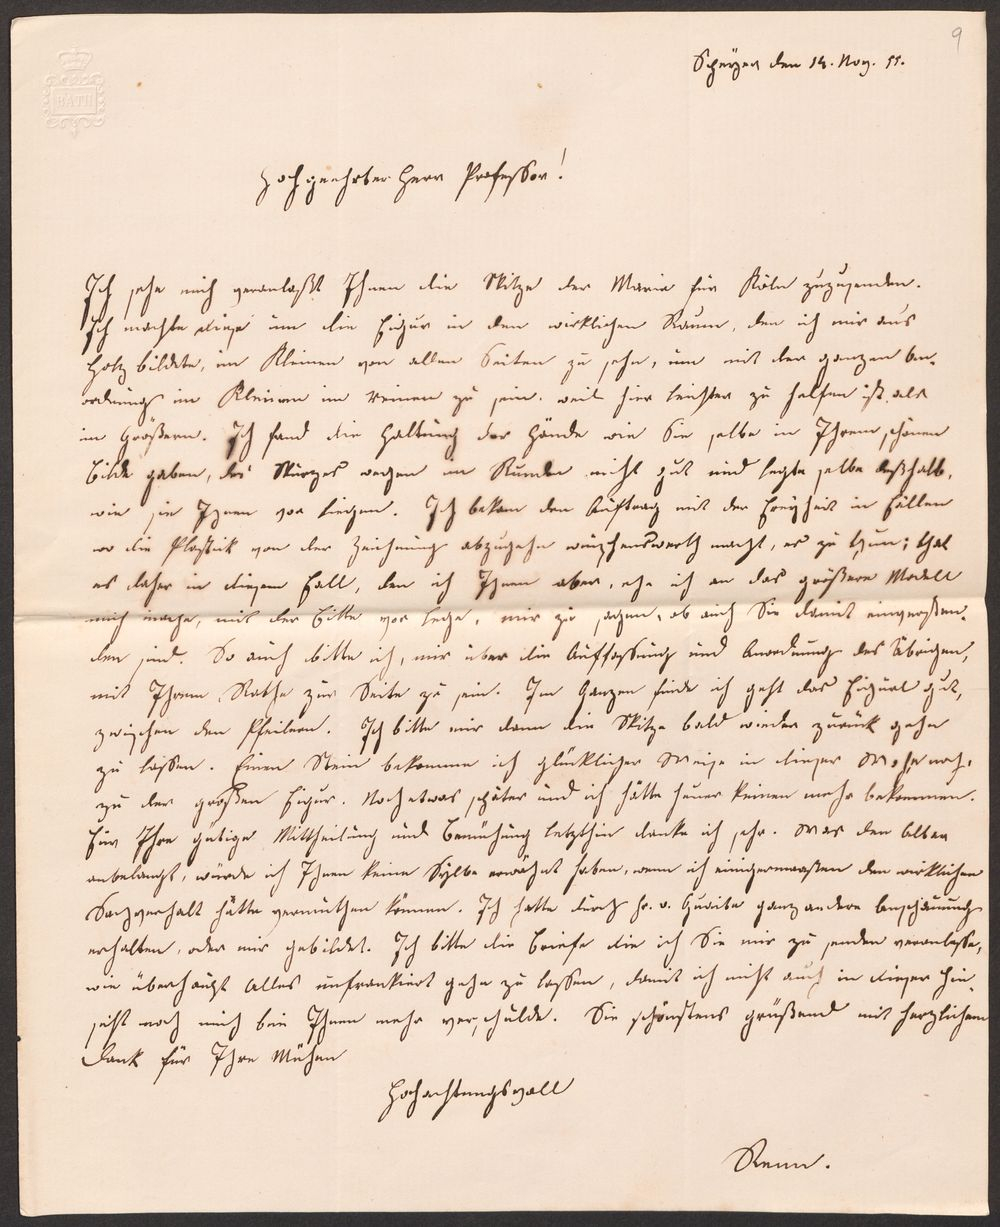 9
BATH
Speyer den 14. Nov. 55.
Hochgeehrter Herr Professor!
Ich sehe mich veranlaßt Ihnen die Skitze der Maria für Köln zuzusenden.
Ich machte diese um die Figur in den wirklichen Raum, den ich mir aus
Holz bildete, im Kleinen von allen Seiten zu sehn, um mit der ganzen An-
ordnung im Kleinen im reinen zu sein, weil hier leichter zu helfen ist als
im Größern. Ich fand die Haltung der Hände wie Sie selbe in Ihrem schönen
Bilde gaben, des Skurzes wegen im Runden nicht gut und legte selbe deßhalb,
wie sie Ihnen vor liegen. Ich bekam den Auftrag mit der Freyheit in Fällen
wo die Plastik von der Zeichnung abzugehn wünschenswerth macht, es zu thun; that
es daher in diesem Fall, den ich Ihnen aber, ehe ich an das größere Modell
mich mache, mit der Bitte vor lege, mir zu sagen, ob auch Sie damit einverstan-
den sind. So auch bitte ich, mir über die Auffassung und Anordnung des Übrigen,
mit Ihrem Rathe zur Seite zu sein. Im Ganzen finde ich geht das Figürl gut,
zwischen den Pfeilern. Ich bitte mir dann die Skitze bald wieder zurück gehn
zu lassen. Einen Stein bekomme ich glücklicher Weise in dieser Woche noch,
zu der großen Figur. Noch etwas später und ich hätte heuer keinen mehr bekommen.
Für Ihre gütige Mittheilung und Bemühung letzthin danke ich sehr. Was den Alten
anbelangt, würde ich Ihnen keine Sylbe erwähnt haben, wenn ich einigermaaßen den wirklichen
Sachverhalt hätte vermuthen können. Ich hatte durch H. v. ganz andere Anschauung
erhalten, oder mir gebildet. Ich bitte die Briefe die ich Sie mir zu senden veranlasse,
wie überhaupt Alles unfrankiert gehn zu lassen, damit ich nicht auch in dieser Hin-
sicht noch mich bei Ihnen mehr verschulde. Sie schönstens grüßend mit herzlichem
Dank für Ihre Mühen
Hochachtungsvoll
Renn.